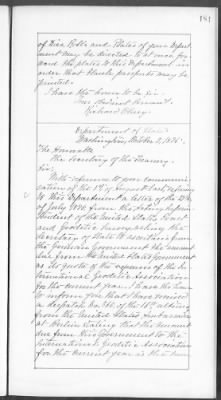 181
of Dies, Rolls and Plates of your Depart-
ment may be directed to at once for-
ward the plates to this Department in
order that blank passports may be
printed.
I have the honor to be, Sir,
Your obedient servant,
Richard Olney.
Department of State,
Washington, October 2, 1895.
The Honorable
The Secretary of the Treasury.
Sir:
With reference to your communi-
cation of the of August last, referring
to this Department a letter of the
of July from the Acting Super-
intendent of the United States Coast
and Geodetic Survey asking the
Secretary of State to ascertain from
the German Government the amount
due from the United States Government
as its quota of the expenses of the In-
ternational Geodetic Association
for the current year, I have the honor
to inform you that I have received
a despatch No. of the
from the United States Ambassador
at Berlin stating that the amount
due from this Government to the
International Geodetic Association
for the current year is the sum